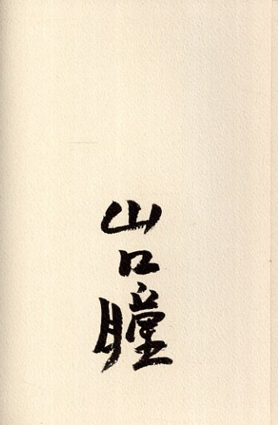 山口瞳